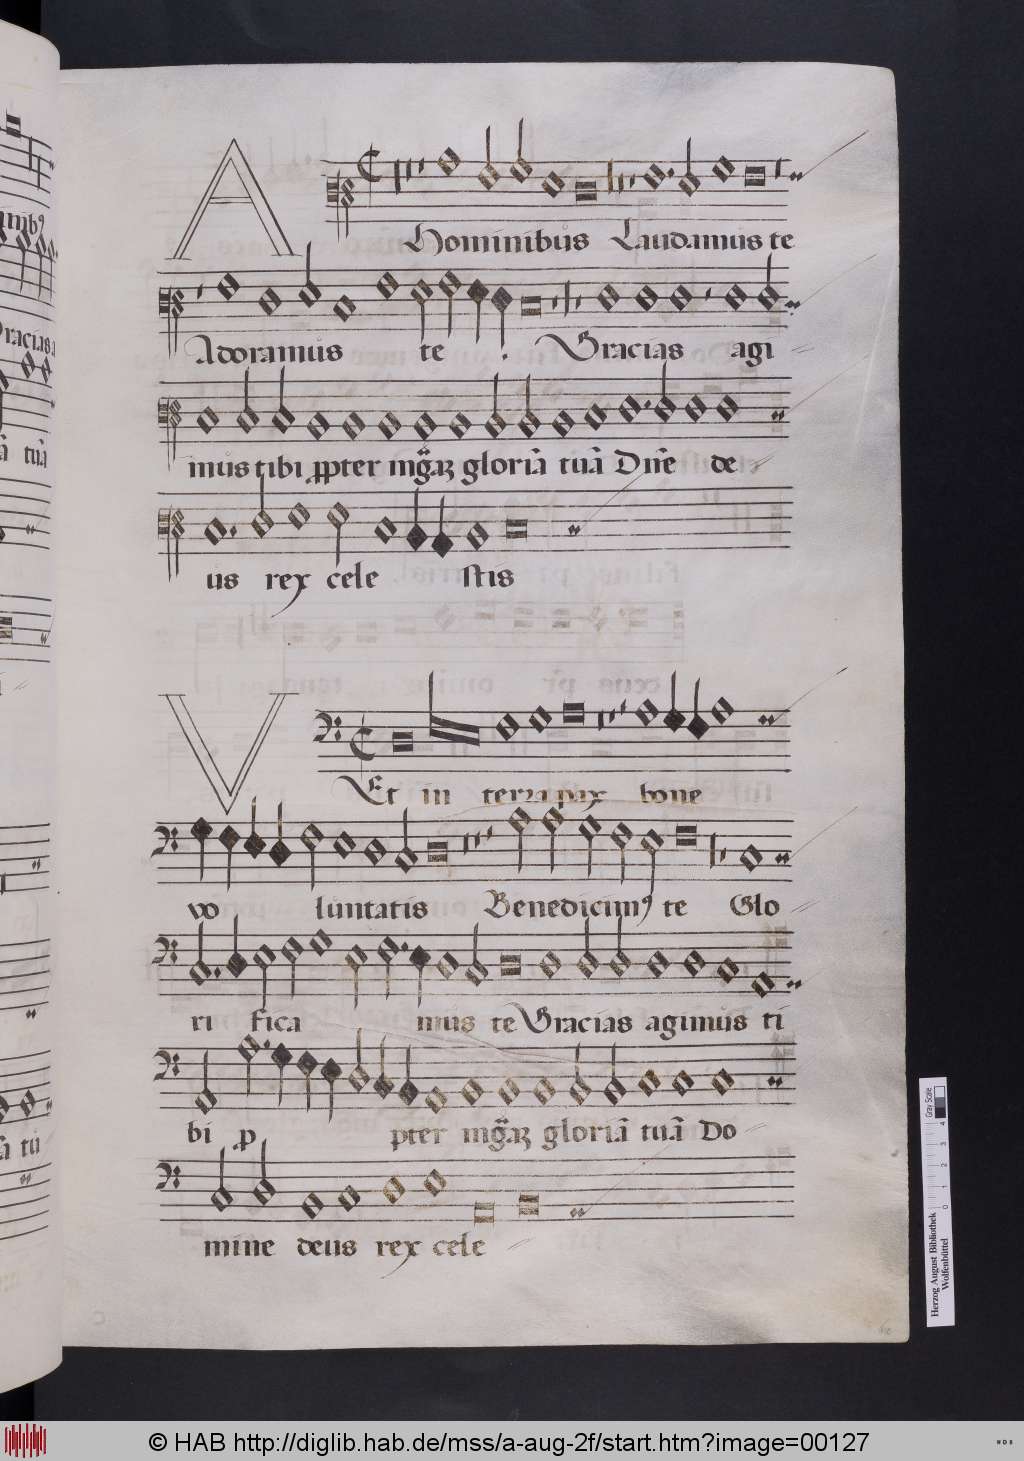 A
Hominibus Laudamus te
Adoramus te . Gracias agi
mus tibi ꝓpter mg̃aꝫ gloriã tuã Dñe de
us rex cele stis
V
Et in terra pax bone
vo luntatis Benedicimꝰ te Glo
ri fica mus te Gracias agimus ti
bi ꝓ pter mg̃aꝫ gloriã tuã Do
mine deus rex cele
Herzog August Bibliothek
Wolfenbüttel
0 1 2 3 4
Gray Scale
© HAB http://diglib.hab.de/mss/a-aug-2f/start.htm?image=00127